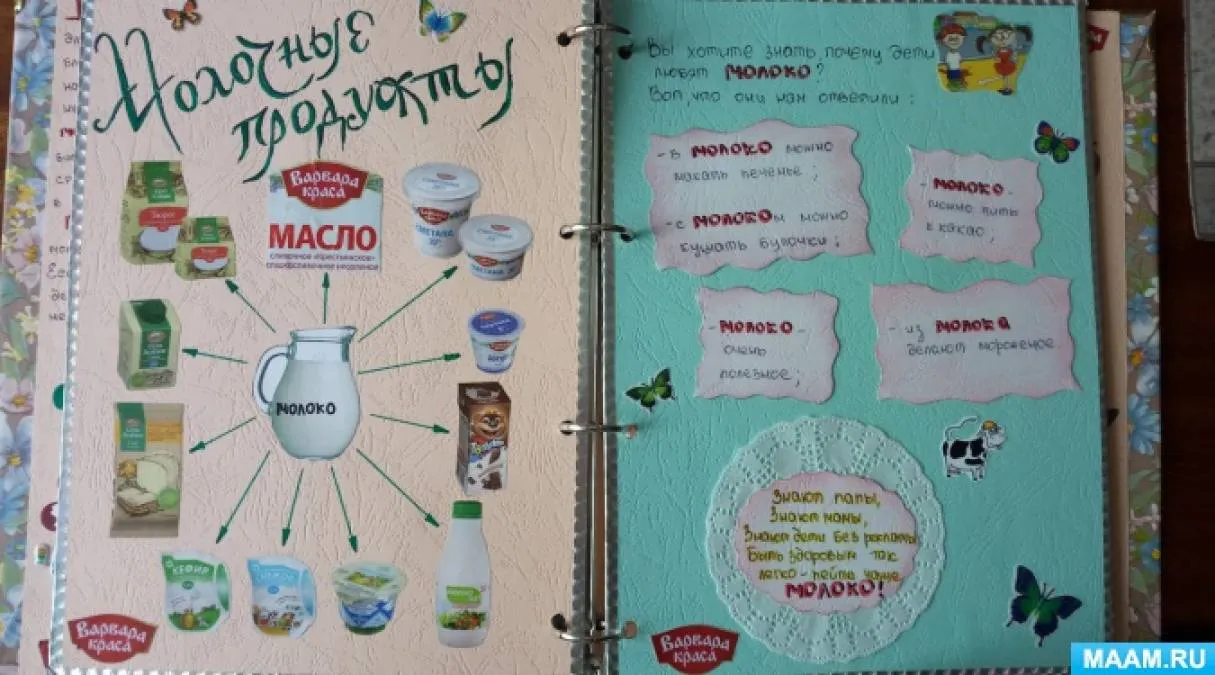 Молочные
продукты
Творог
Варвара
краса
МАСЛО
сливочное «Крестьянское»
сладкосливочное несоленое
СМЕТАНА
СМЕТАНА
МОЛОКО
КЕФИР
Варвара
краса
Вы хотите знать, почему дети
любят МОЛОКО?
Вот, что они нам ответили:
- в МОЛОКО можно
макать печенье;
- с МОЛОКОм можно
кушать булочки;
- МОЛОКО -
можно пить
к какао;
- МОЛОКО -
очень
полезное;
- из МОЛОКА
делают мороженое.
Знают папы,
Знают мамы,
Знают дети без рекламы
Быть здоровым так
легко - пейте чаще
МОЛОКО!
Варвара
краса
MAAM.RU